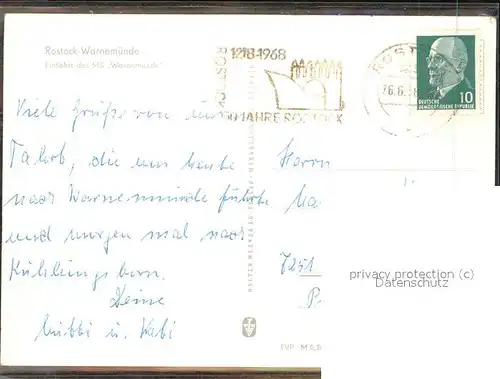 Rostock-Warnemünde
Einfahrt des MS „Warnemünde“
1218·1968
ROSTOCK
JAHRE ROSTOCK
ROST
10
DEUTSCHE
DEMOKRATISCHE REPUBLIK
Viele Grüße von un
die uns heute
nach Warnemünde führte
und morgen mal nach
Kühlungsborn.
Deine
u.
Herrn
7251
EVP M 0,
privacy protection (c)
Datenschutz